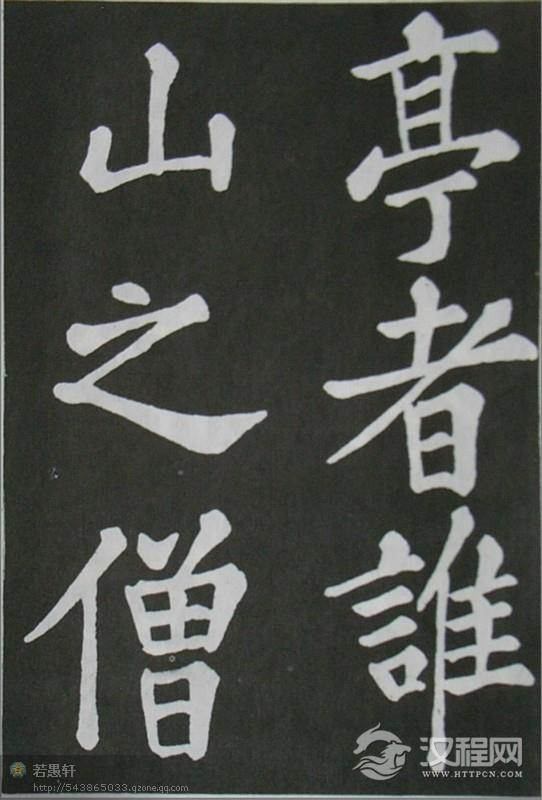 亭者誰
山之僧
若愚轩
http://543865033.qzone.qq.com
汉程网
WWW.HTTPCN.COM